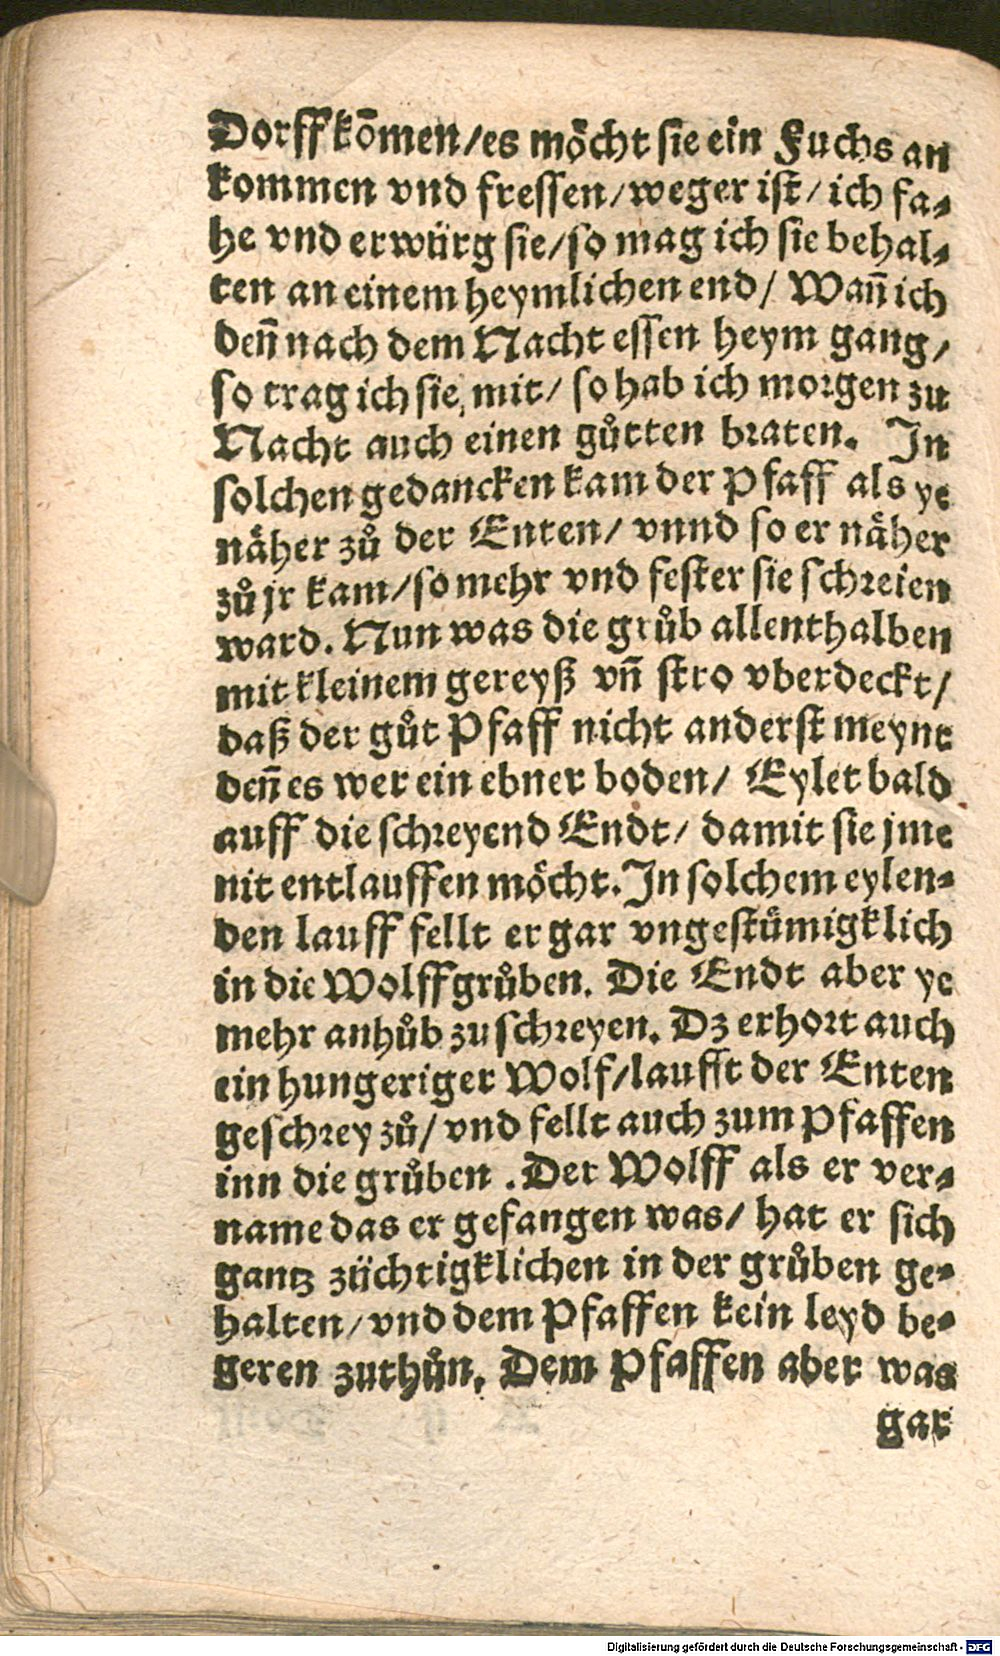 Dorff kom̄en/es mo̊cht sie ein Fuchs an
kommen vnd fressen/weger ist/ ich fa-
he vnd erwürg sie/so mag ich sie behal-
ten an einem heymlichen end/ Wañ ich
deñ nach dem Nacht essen heym gang/
so trag ich sie mit/ so hab ich morgen zu
Nacht auch einen gůtten braten. In
solchen gedancken kam der Pfaff als ye
näher zů der Enten/ vnnd so er näher
zů jr kam/so mehr vnd fester sie schreien
ward. Nun was die grůb allenthalben
mit kleinem gereyß vñ stro vberdeckt/
daß der gůt Pfaff nicht anderst meynt
deñ es wer ein ebner boden/ Eylet bald
auff die schreyend Endt/ damit sie jme
nit entlauffen möcht. In solchem eylen-
den lauff fellt er gar vngestümigklich
in die Wolffgrůben. Die Endt aber ye
mehr anhůb zu schreyen. Dz erhort auch
ein hungeriger Wolf/laufft der Enten
geschrey zů/ vnd fellt auch zum Pfaffen
inn die grůben . Der Wolff als er ver-
name das er gefangen was/ hat er sich
gantz züchtigklichen in der grůben ge-
halten/ vnd dem Pfaffen kein leyd be-
geren zuthůn. Dem Pfaffen aber was
gar
Digitalisierung gefördert durch die Deutsche Forschungsgemeinschaft - DFG